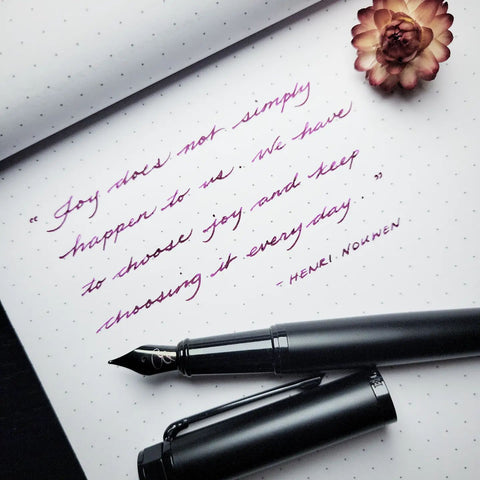 “ Joy does not simply
happen to us. We have
to choose joy and keep
choosing it every day. ”
- HENRI NOUWEN